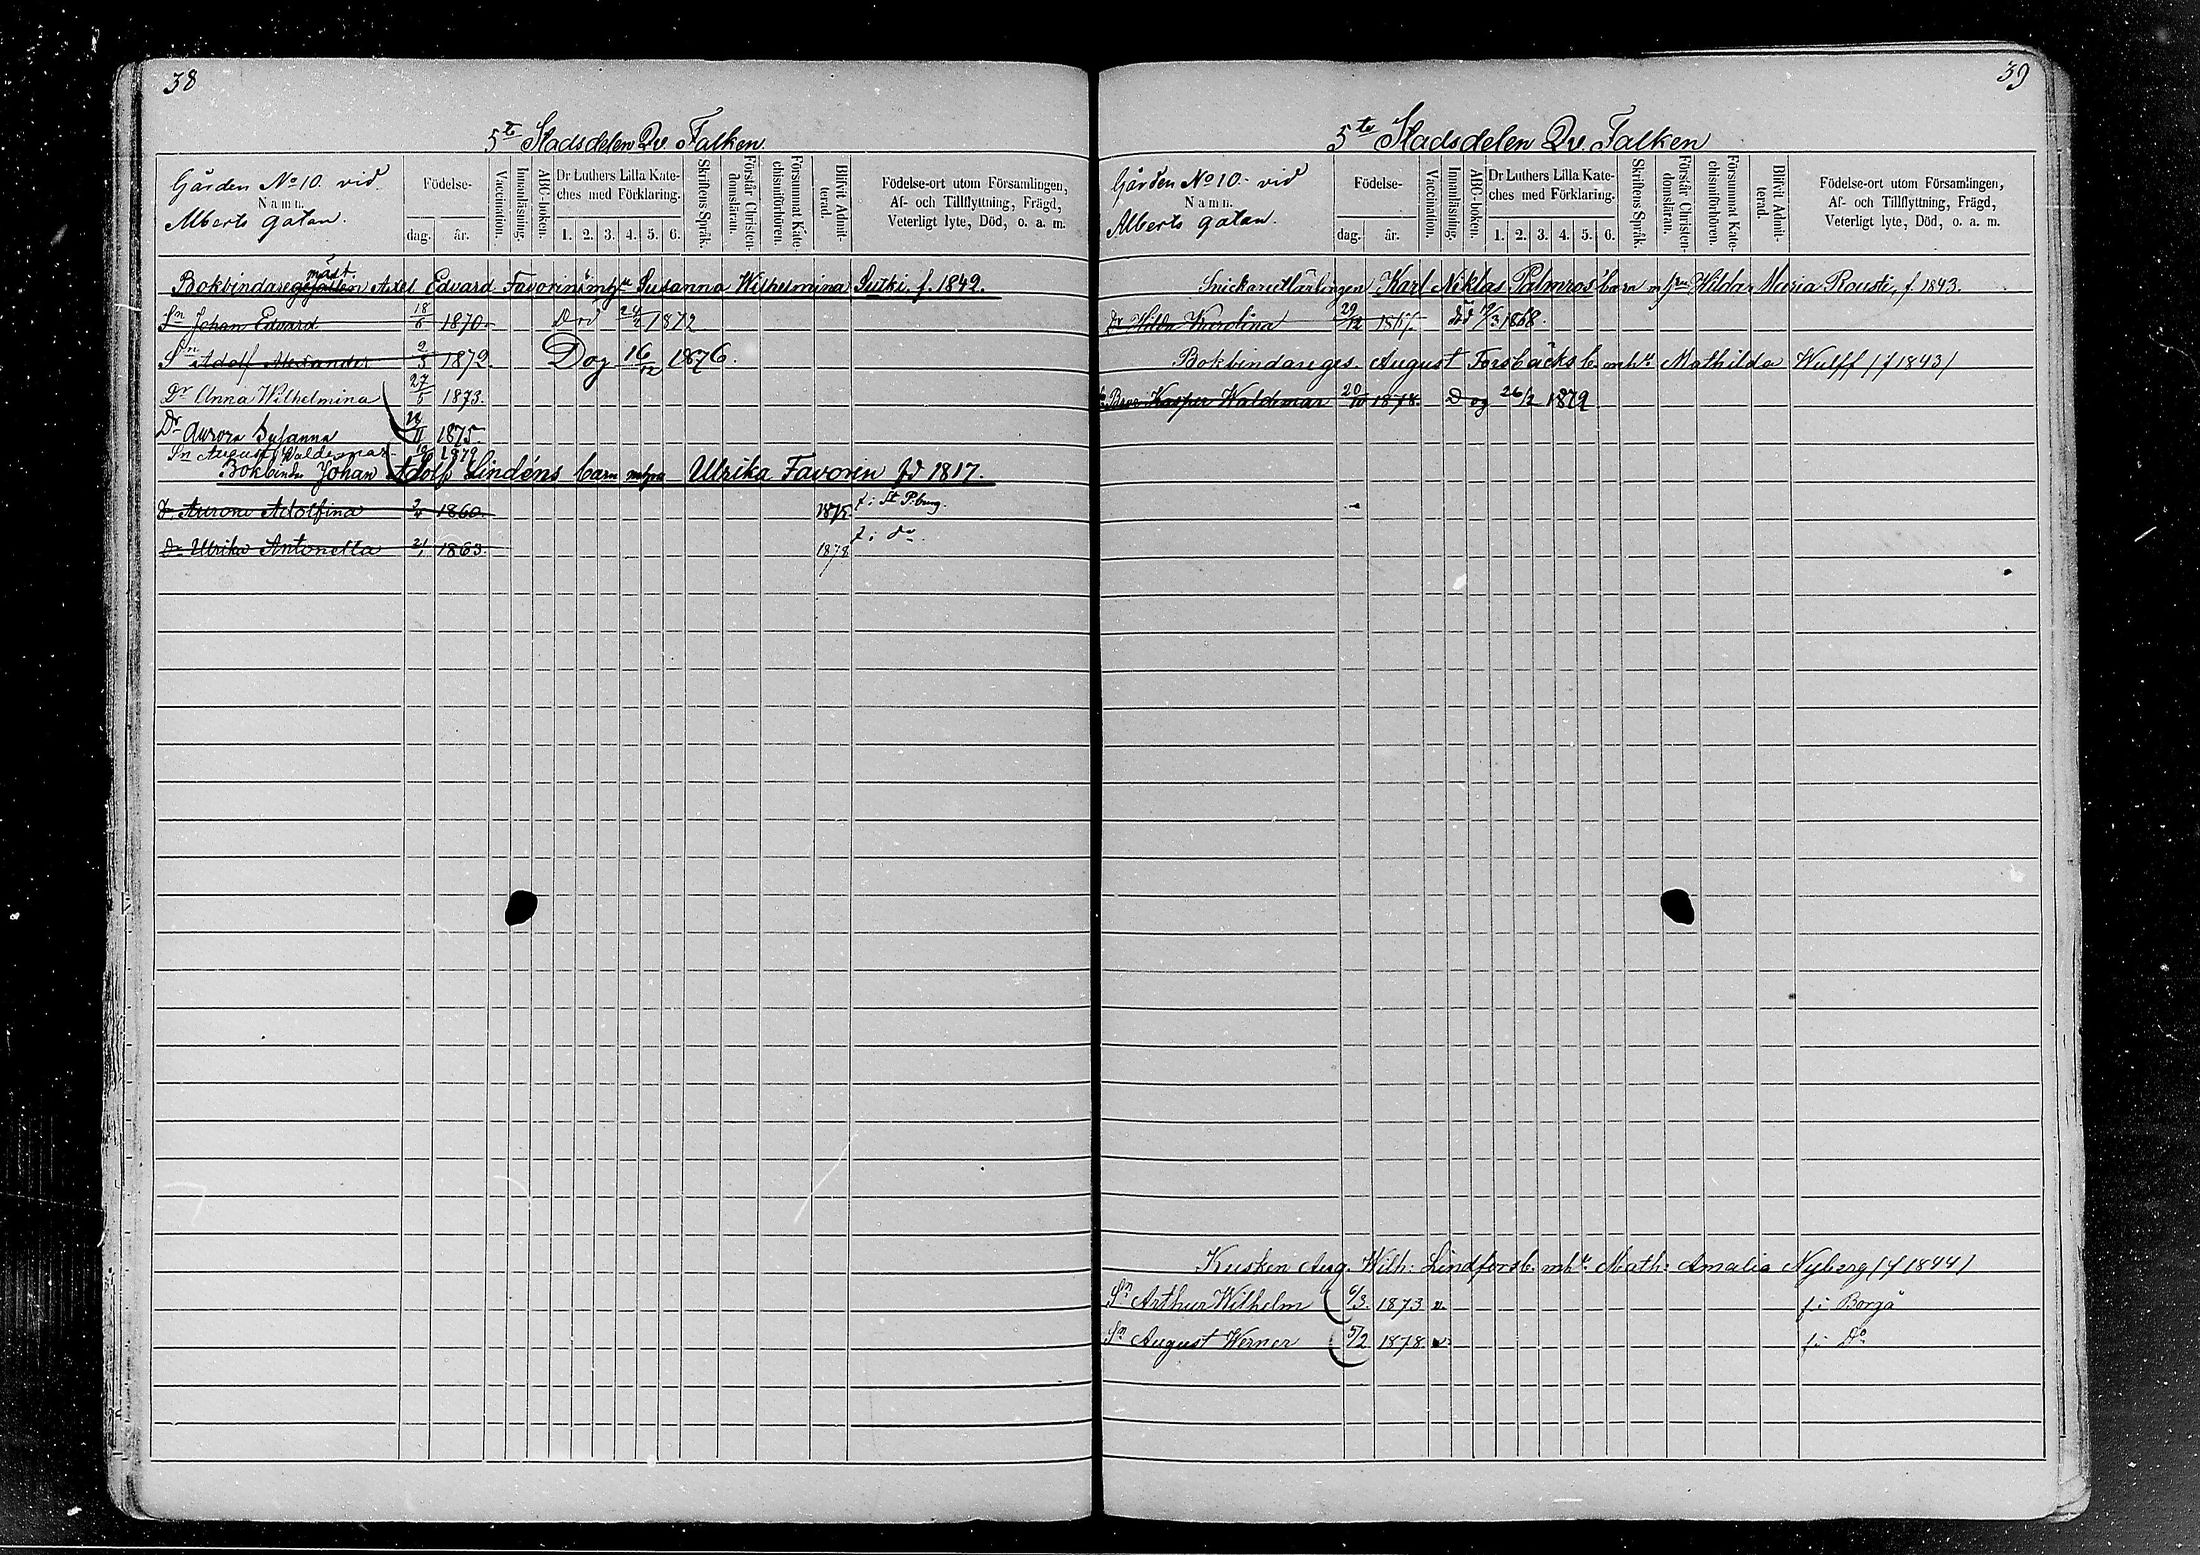 38
5te Stadsdelen Qv. Falken
Gården No 10. vid
Namn.
Alberts gatan.
Födelse-
dag. år.
Vaccination.
Innanläsning.
ABC-boken.
Dr Luthers Lilla Kate-
ches med Förklaring.
1. 2. 3. 4. 5. 6.
Skriftens Språk.
Förstår Christen-
domsläran.
Försummat Kate-
chismiförhören.
Blifvit Admit-
terad.
Födelse-ort utom Församlingen,
Af- och Tillflyttning, Frägd,
Veterligt lyte, Död, o. a. m.
mäst.
Bokbindaregesällen Axel Edvard Favorin Susanna Wilhelmina Sutki f. 1842.
Sn Johan Edvard 18/6 1870 Död 24/2 1872
Sn Adolf Alexander 9/3 1872. Dog 16/12 1876.
Dr Anna Wilhelmina 27/5 1873.
Dr Aurora Susanna 1875.
Sn August Waldemar 1879
Bokbind. Johan Adolf Lindéns barn Ulrika Favorin fd 1817.
Dr Aurora Adolfina 1860. 1875. f. i St P.burg.
Dr Ulrika Antonetta 1863. 1878 f. i do
39
5te Stadsdelen Qv. Falken
Gården No 10. vid
Namn.
Alberts gatan.
Födelse-
dag. år.
Vaccination.
Innanläsning.
ABC-boken.
Dr Luthers Lilla Kate-
ches med Förklaring.
1. 2. 3. 4. 5. 6.
Skriftens Språk.
Förstår Christen-
domsläran.
Försummat Kate-
chismiförhören.
Blifvit Admit-
terad.
Födelse-ort utom Församlingen,
Af- och Tillflyttning, Frägd,
Veterligt lyte, Död, o. a. m.
Snickarelärlingen Karl Niklas Palmros' barn m hu Hilda Maria Rousti, f 1843.
Dr Hilda Karolina 29/12 1867. död 1868.
Bokbindareges. August Forsbäcks b. m h. Mathilda Wulff (f 1843)
Kasper Waldemar 20/10 1878. Dog 26/2 1879
Kusken Aug. Wilh: Lindfors b. m h. Math: Amalia Nyberg (f 1844)
Sn Arthur Wilhelm 6/3. 1873 v. f. i Borgå
Sn August Werner 5/2 1878. v. f. i Do